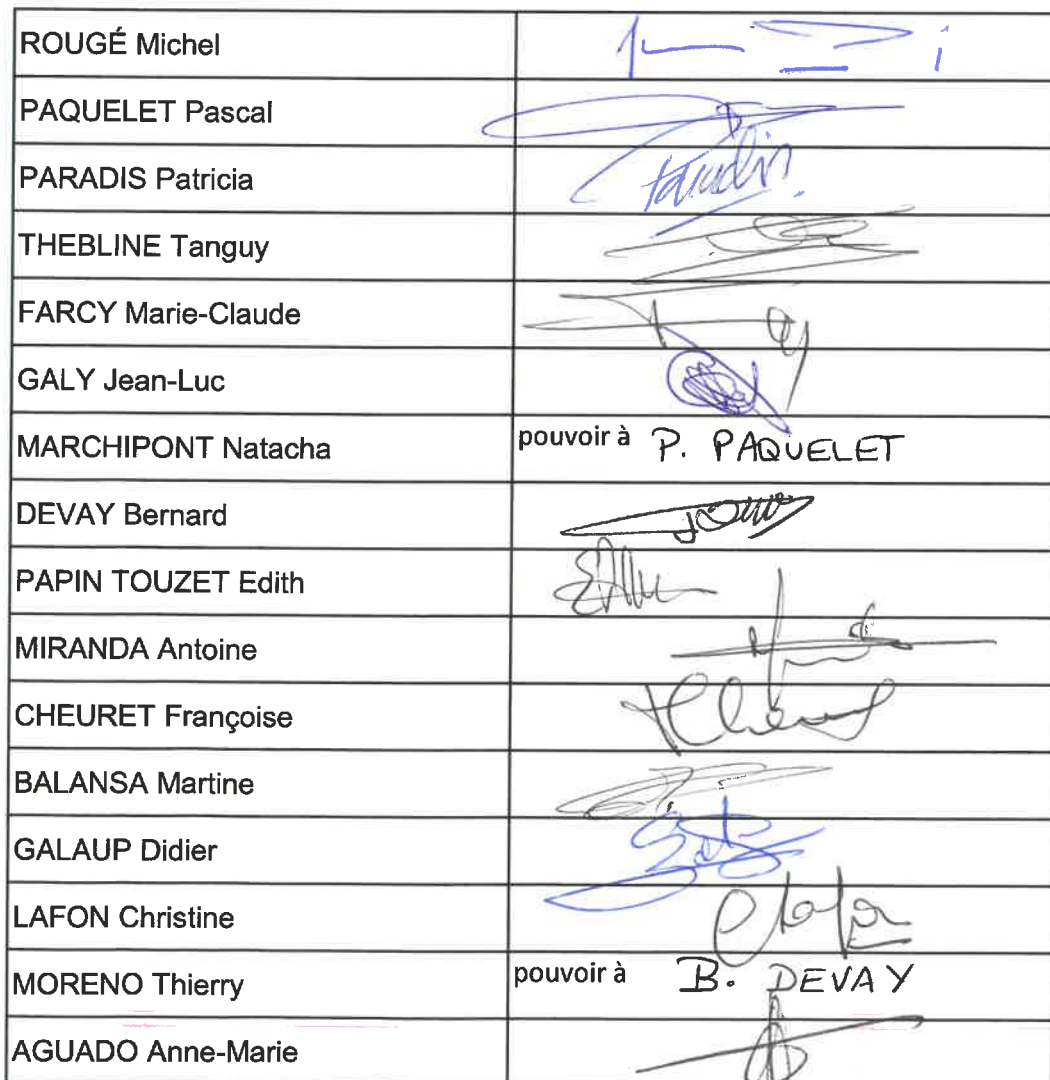 ROUGÉ Michel
PAQUELET Pascal
PARADIS Patricia
THEBLINE Tanguy
FARCY Marie-Claude
GALY Jean-Luc
MARCHIPONT Natacha pouvoir à P. PAQUELET
DEVAY Bernard
PAPIN TOUZET Edith
MIRANDA Antoine
CHEURET Françoise
BALANSA Martine
GALAUP Didier
LAFON Christine
MORENO Thierry pouvoir à B. DEVAY
AGUADO Anne-Marie